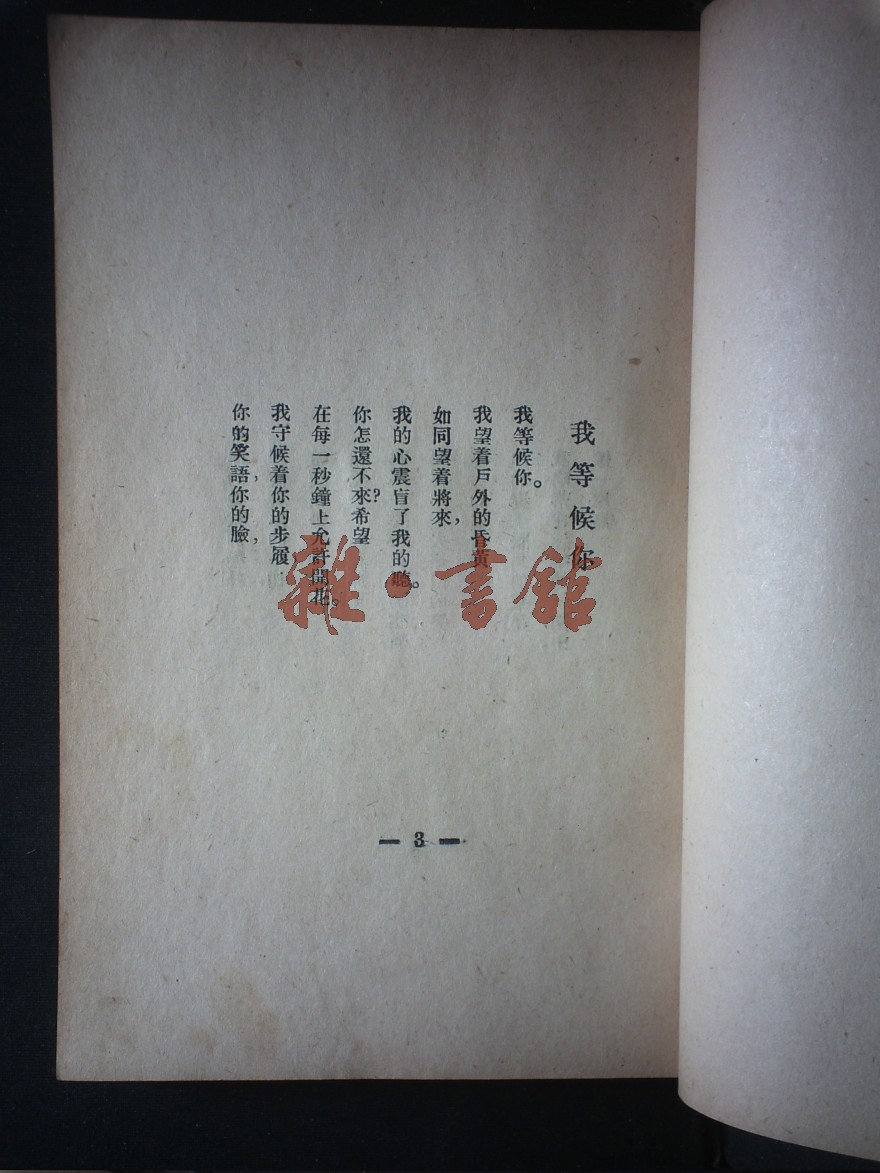 我等候你
我等候你。
我望着戶外的昏黃
如同望着將來，
我的心震盲了我的聽。
你怎還不來？希望
在每一秒鐘上允許開花。
我守候着你的步履，
你的笑語，你的臉，
雜·書館
— 3 —